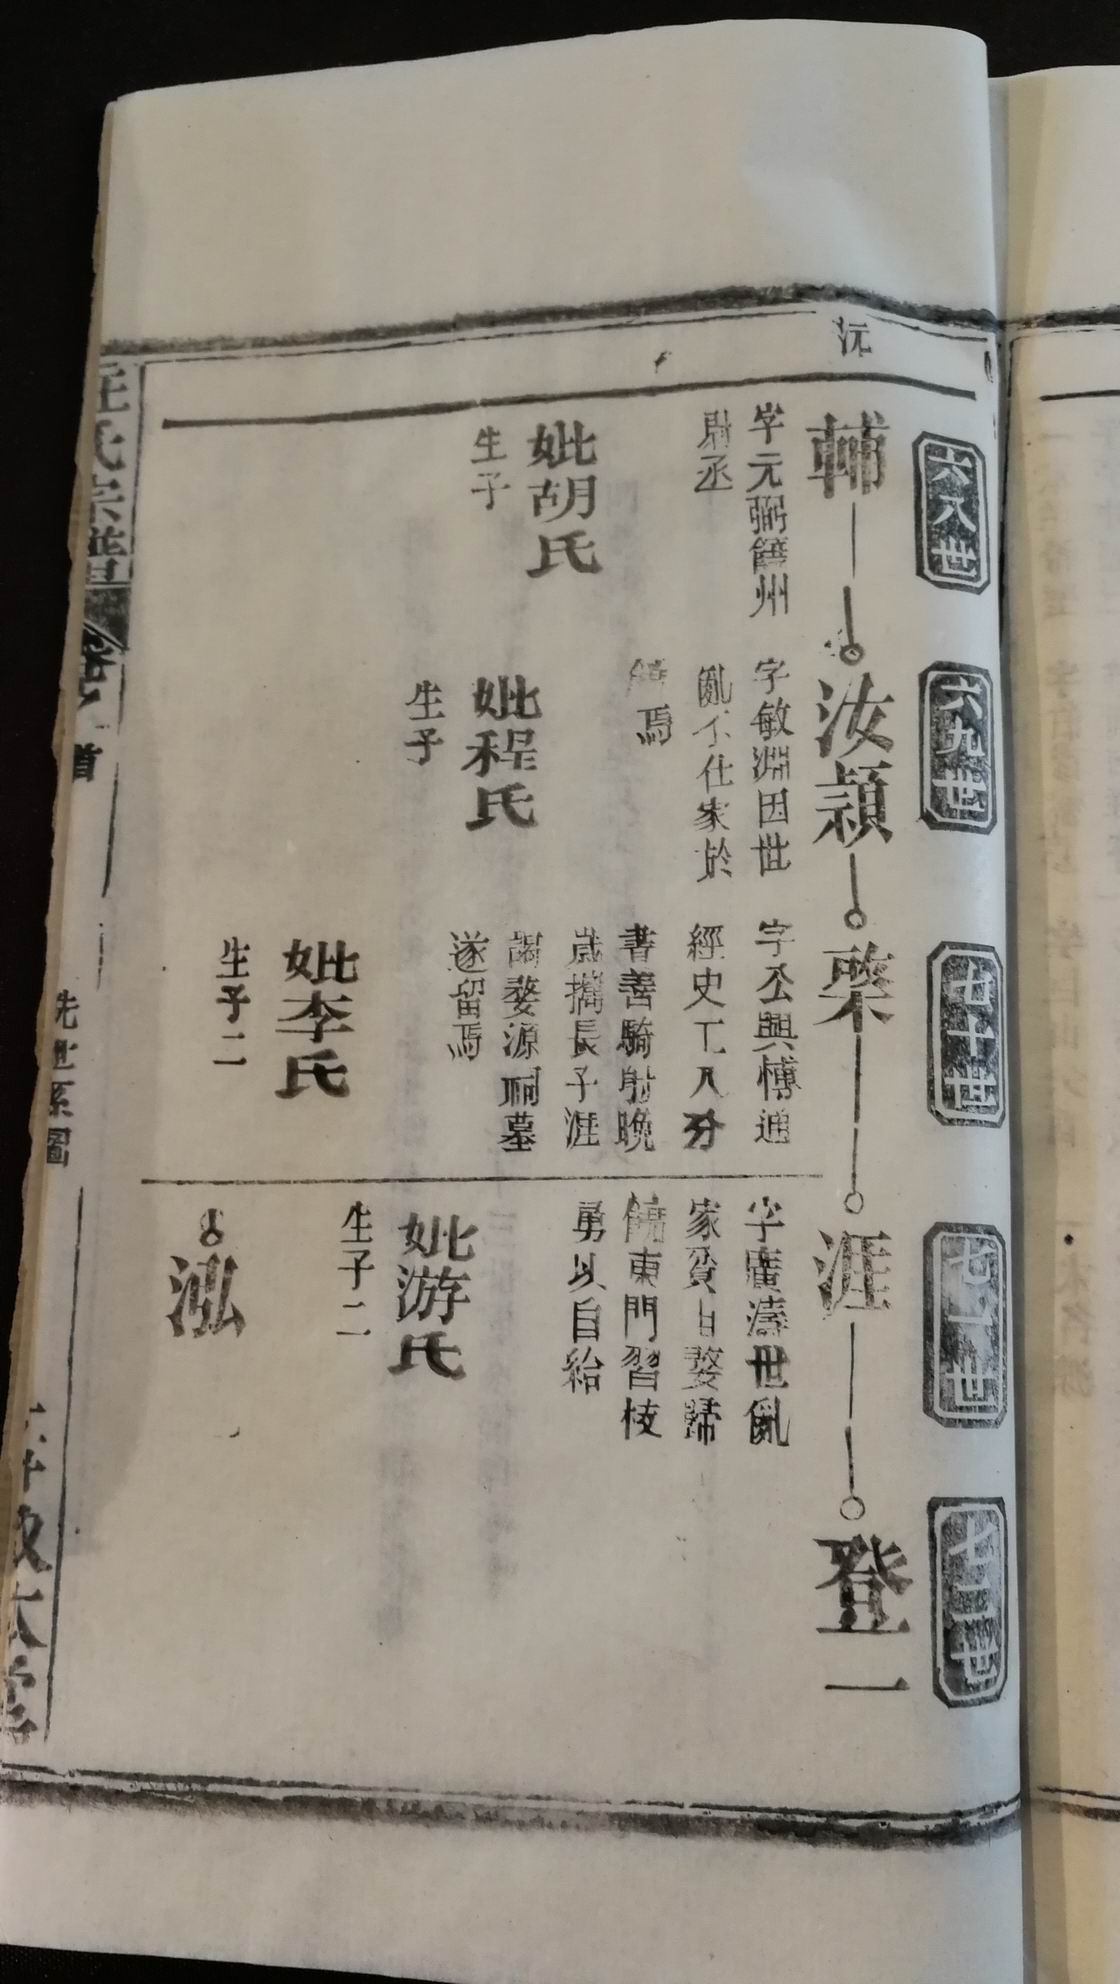 沅
六八世
輔
字元弼饒州
尉丞
妣胡氏
生子
六九世
汝頴
字敏淵因世
亂不仕家於
饒焉
妣程氏
生子
七十世
棨
字公興博通
經史工八分
書善騎射晚
歲攜長子涯
謁婺源祠墓
遂留焉
妣李氏
生子二
七一世
涯
字廣濤世亂
家貧自婺歸
饒東門習技
勇以自給
妣游氏
生子二
泓
七二世
登一
汪氏宗譜
卷首
先世系圖